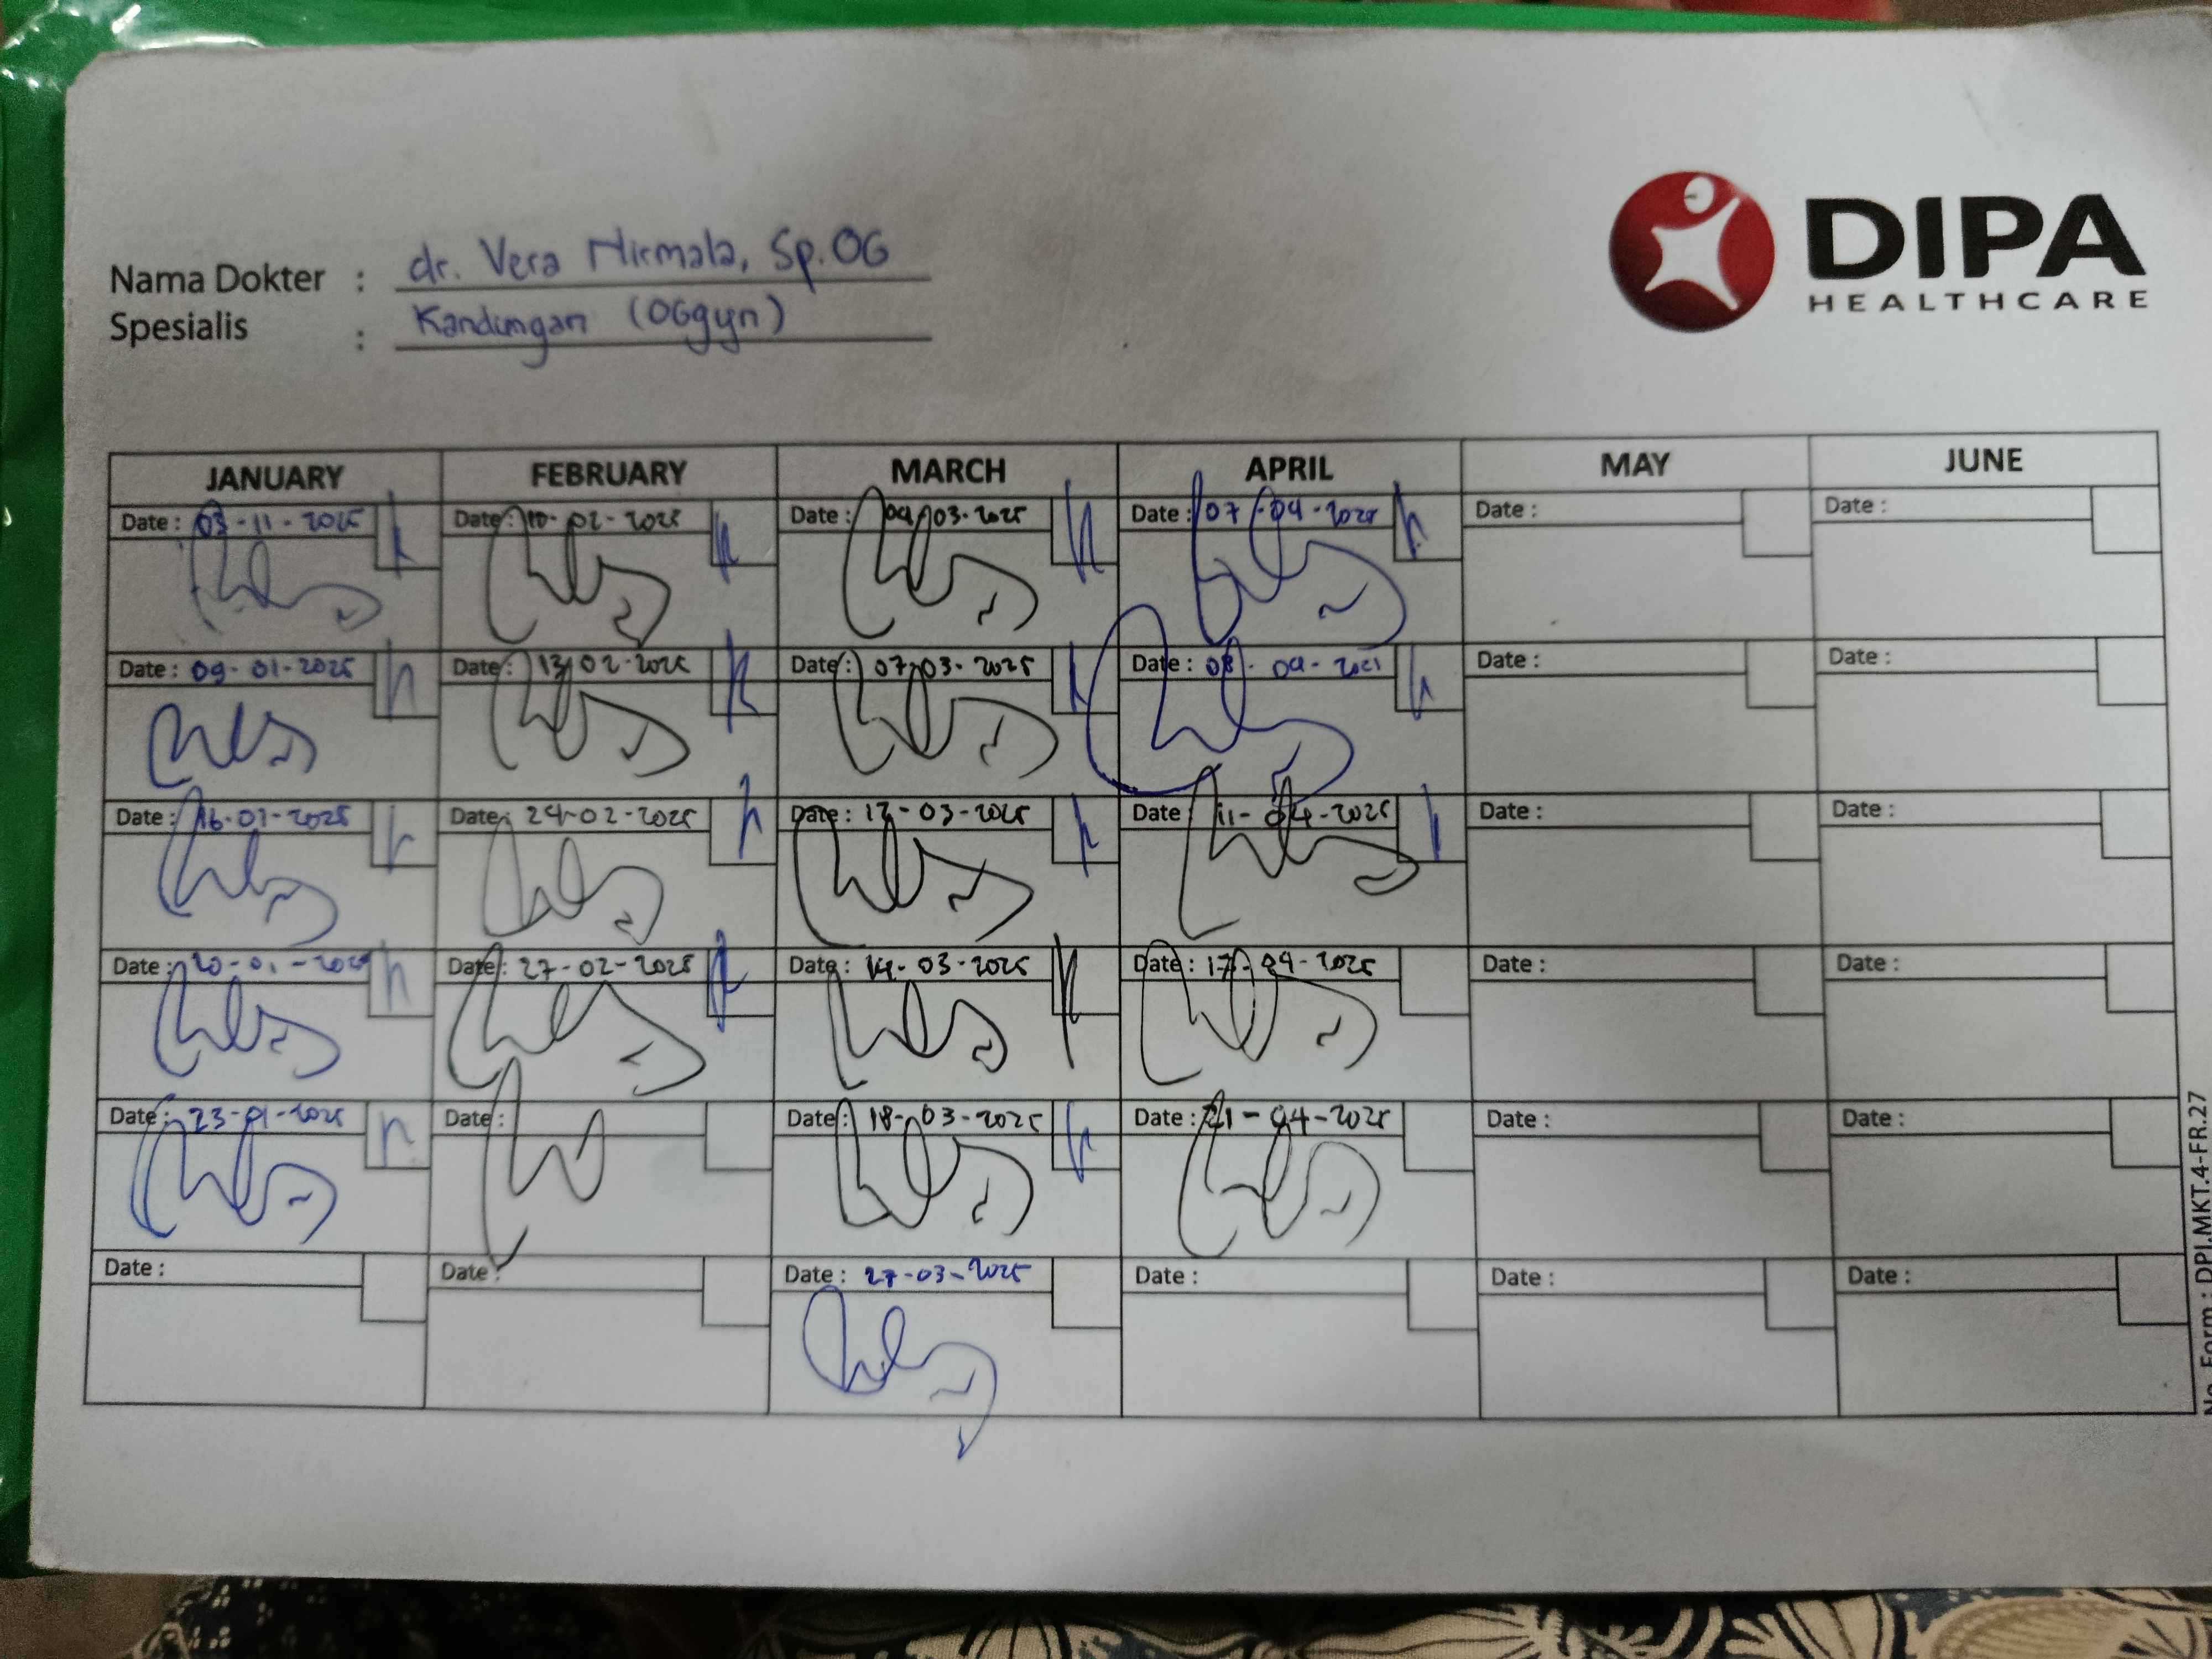 DIPA
HEALTHCARE
Nama Dokter : dr. Vera Nirmala, Sp.OG
Spesialis : Kandungan (OGgyn)
JANUARY FEBRUARY MARCH APRIL MAY JUNE
Date : 03-11-2025 Date : 10-02-2025 Date : 04-03-2025 Date : 07-04-2025 Date : Date :
Date : 09-01-2025 Date : 13-02-2025 Date : 07-03-2025 Date : 08-04-2025 Date : Date :
Date : 16-01-2025 Date : 24-02-2025 Date : 12-03-2025 Date : 11-04-2025 Date : Date :
Date : 20-01-2025 Date : 27-02-2025 Date : 14-03-2025 Date : 17-04-2025 Date : Date :
Date : 23-01-2025 Date : Date : 18-03-2025 Date : 21-04-2025 Date : Date :
Date : Date : Date : 27-03-2025 Date : Date : Date :
No. Form : DPI.MKT.4-FR.27